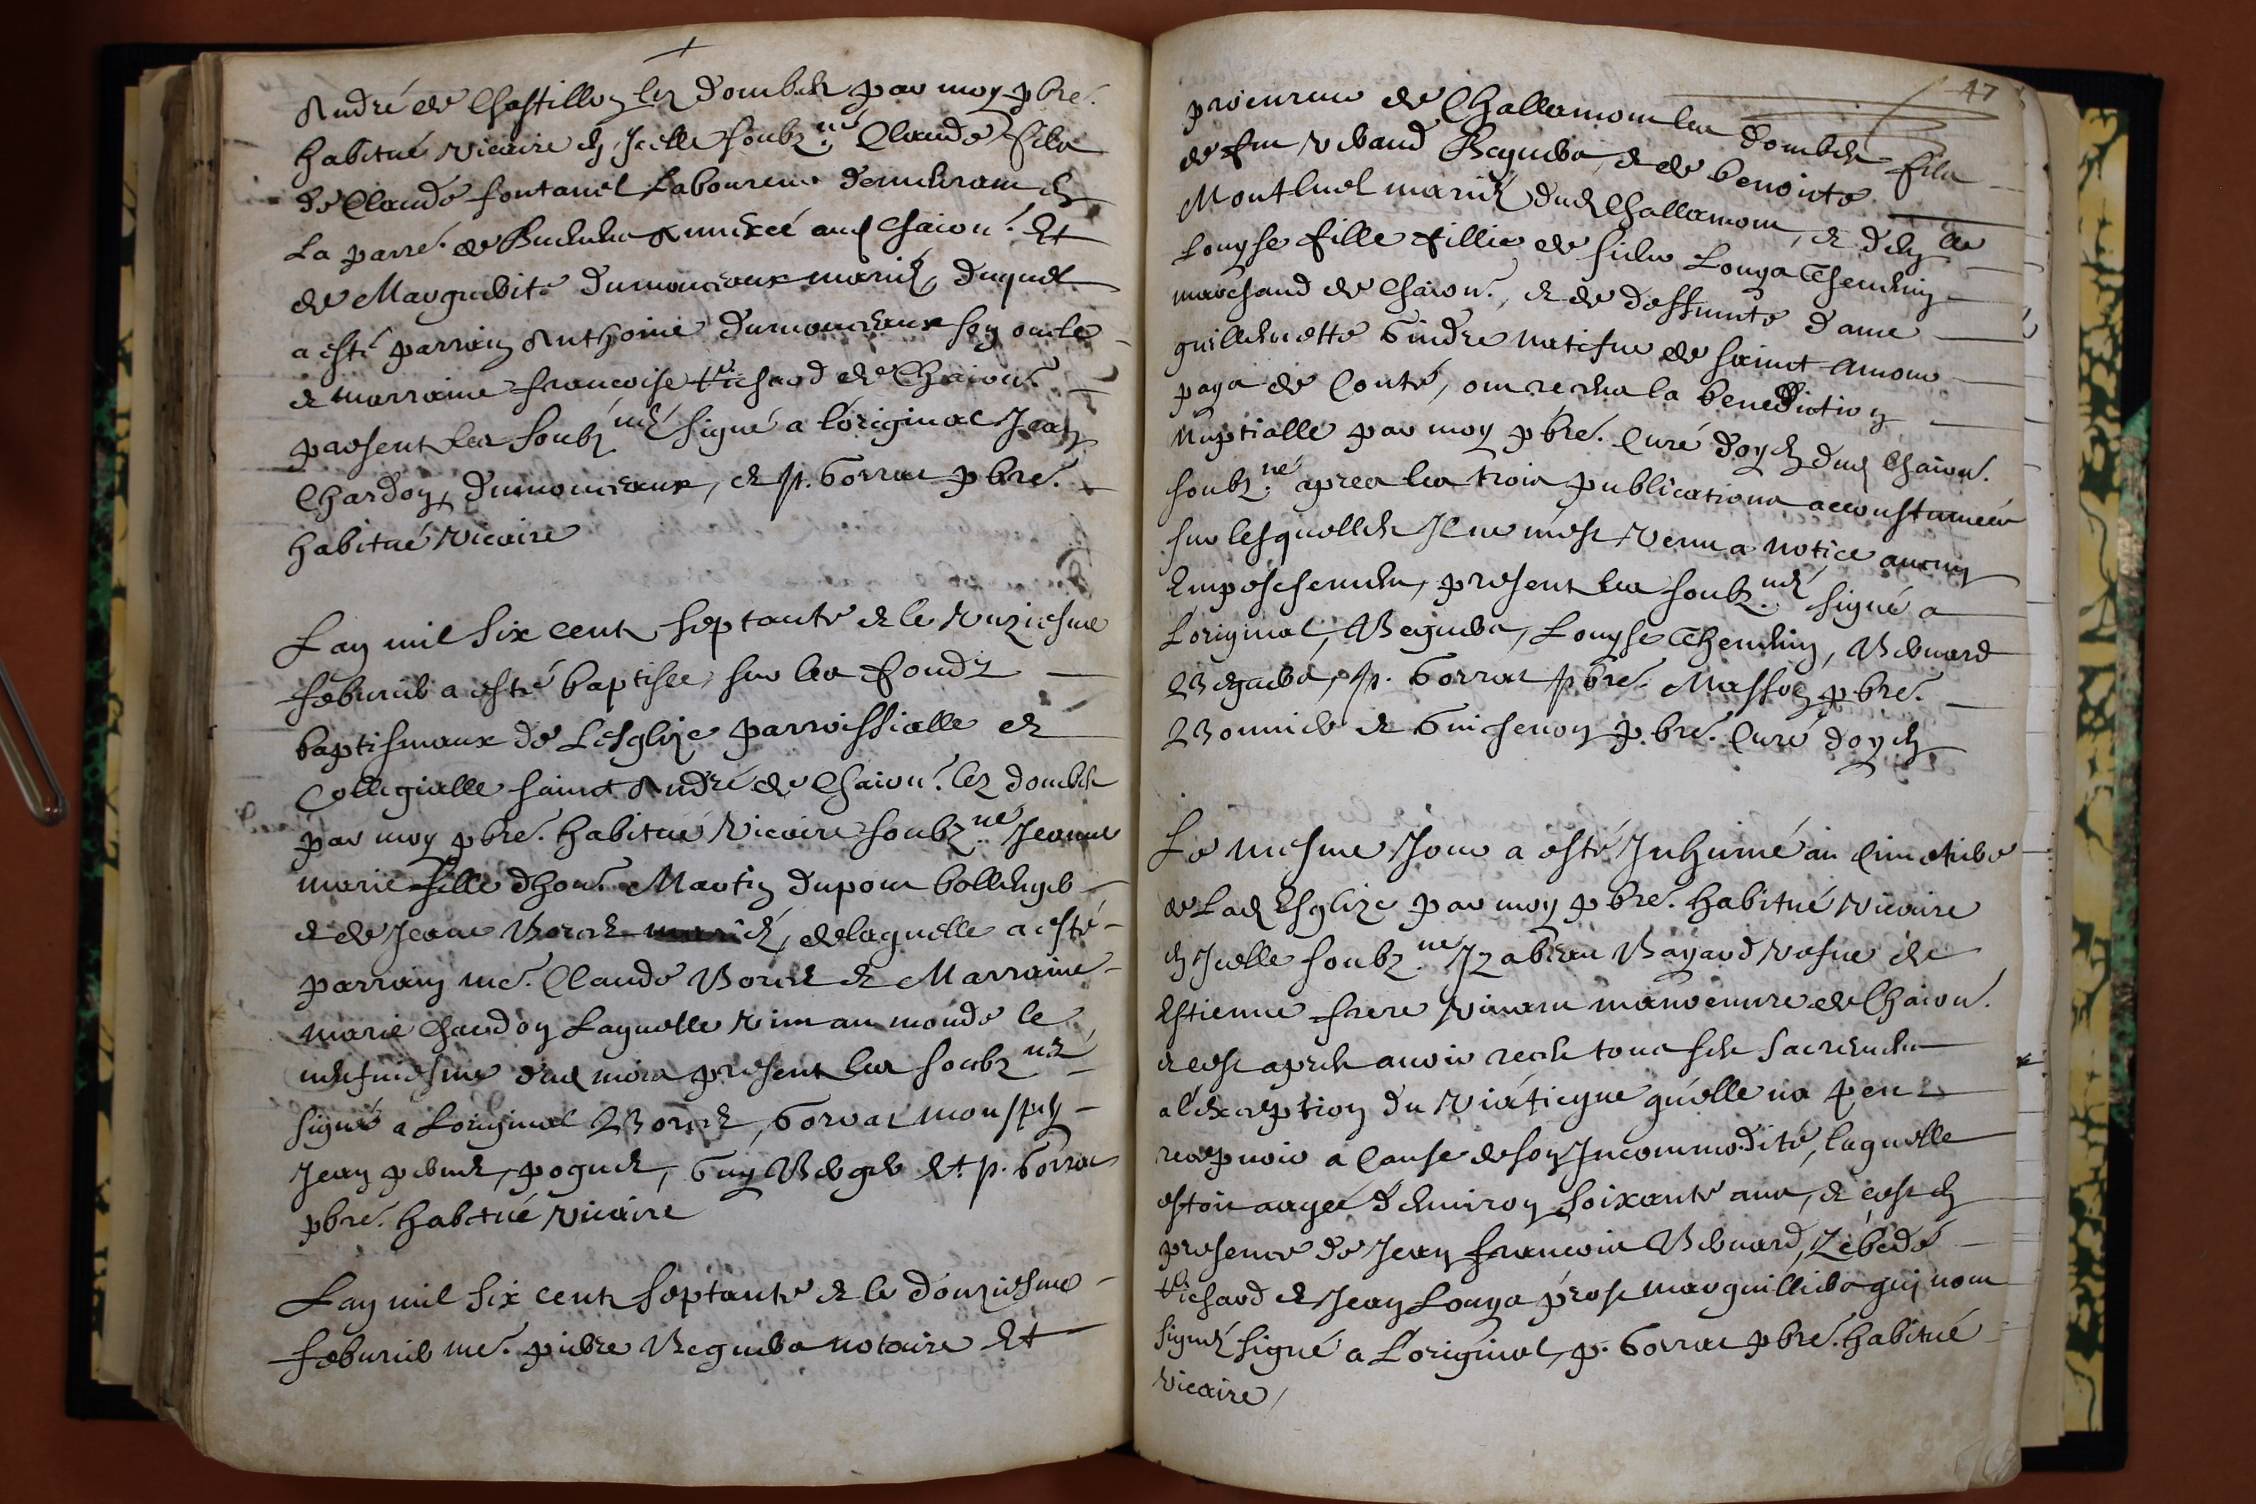 André de Chastillon les Dombes par moy pbre.
habitué vicaire en Icelle soubz.né Claude filz
de Claude fontanel Laboureur demeurant en
La parre. de Buenens annexée aud Chaion. Et
de Marguerite dumonceaux mariés, duquel
a esté parrain Anthoine dumonceaux son oncle
et marraine francoise Richard de Chaion.
presentz les soubz.nés signé a l'original Jean
Chardon, dumonceaux, et p. Gorrat pbre.
habitué vicaire
Lan mil six centz septante et le unziesme
feburier a esté baptisée sur les fondz
baptismaux de Lesglize parroissialle et
Collegialle sainct André de Chaion. lez dombes
par moy pbre. habitué vicaire soubz.né Jeanne
marie fille dhon. Martin dupont bollenger
et de Jeane Borcet mariés, de laquelle a esté
parrain me. Claude Borcet et Marraine
marie Chardon Laquelle vint au monde le
neufuiesme dud mois presentz les soubz.nés
signé a Loriginal Borcet, Gorrat
Jean poguet, Guy Berger Et p. Gorrat
pbre. habitué vicaire
Lan mil six centz septante et le douziesme
feburier me. pierre Beguers notaire Et
47
procureur de Challamont les dombes filz
de feu Beguers, et de benoiste
Montluel mariés dud Challamont, et dlle
Louyse fille de sieur Louys Thenein
marchand de Chaion., et de deffuncte dame
guillemette Gindre natifue de sainct Amour
pays de Conté, ont receu la benediction
Nuptialle par moy pbre. Curé doyen dud Chaion.
soubz.né apres les trois publications accoustumées
sur lesquelles Il ne m'est venu a notice aucun
Empeschement, presentz les soubz.nés signé a
Loriginal, Beguers, Louyse Thenein, Bernard
Beguers, p. Gorrat pbre. Masson pbre.
Bonnier et Guichenon pbre. Curé doyen
Le mesme Jour a esté Inhumé au Cimetiere
de Lad Esglize par moy pbre. habitué vicaire
en Icelle soubz.né Izabeau Bayard vefue de
Estienne frere vivant manoeuvre de Chaion.
et est apres auoir receu tous ses sacrements
a l'exception du viatique qu'elle na peu
recepuoir a Cause de son Incommodité, laquelle
estoit aagée denuiron soixante ans, et c'est en
presence de Jean francois Bernard, Zébédé
Richard et Jean Louys prost marguilliers qui n'ont
signés signé a L'original, p. Gorrat pbre. habitué
vicaire